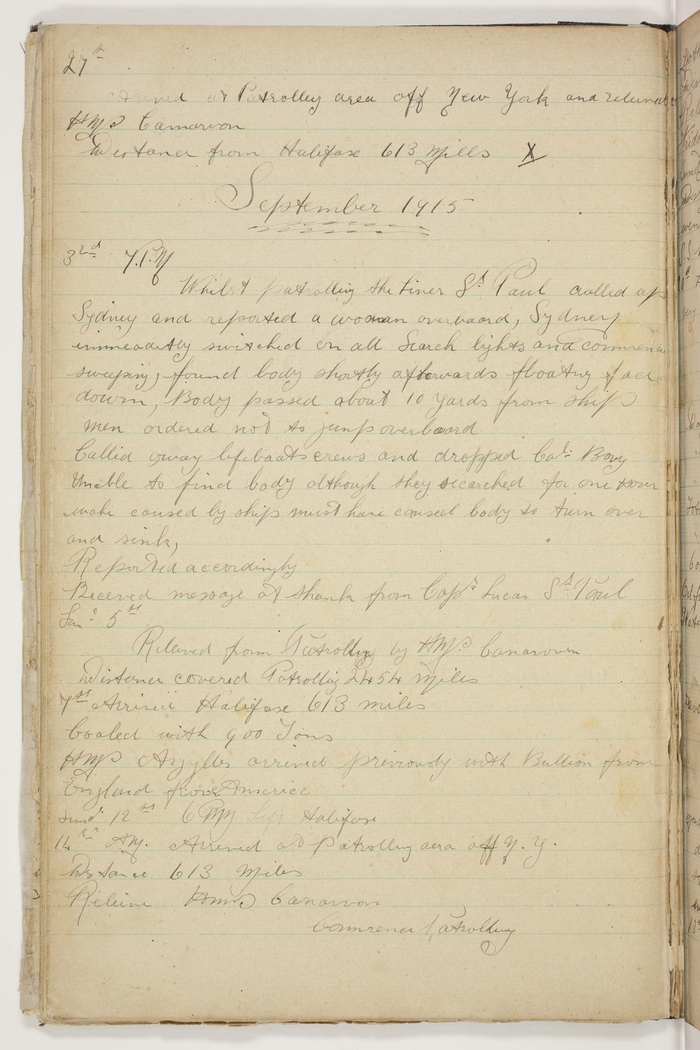 27th
Arrived at Patrolley area off New York and relieved
HMS Carnarvon
Distance from Halifax 613 Mills X
September 1915
3rd 7.PM
Whilst patrolling the Liner St Paul called up
Sydney and reported a woman overboard, Sydney
immeadatly switched on all Search lights and commence
sweeping, found body shortly afterwards floating face
down, Body passed about 10 yards from ship
men ordered not to jump overboard
Called away lifeboats crews and dropped Bouy
Unable to find body although they searched for one hour
wake caused by ship must have caused body to turn over
and sink,
Reported accordingly
Received message of thanks from Capt Lucas St Paul
Sun: 5th
Relieved from Patrolling by HMS Canarvon
Distance covered Patrolling 2454 Miles
7th Arrived Halifax 613 miles
Coaled with 900 Tons
HMS Argylle arrived previously with Bullion from
England for America
Sund: 12th 6 PM Left Halifax
14th AM. Arrived at Patrolley area off N.Y.
Distance 613 Miles
Releive HMS Canarvon
Commence Patrolling